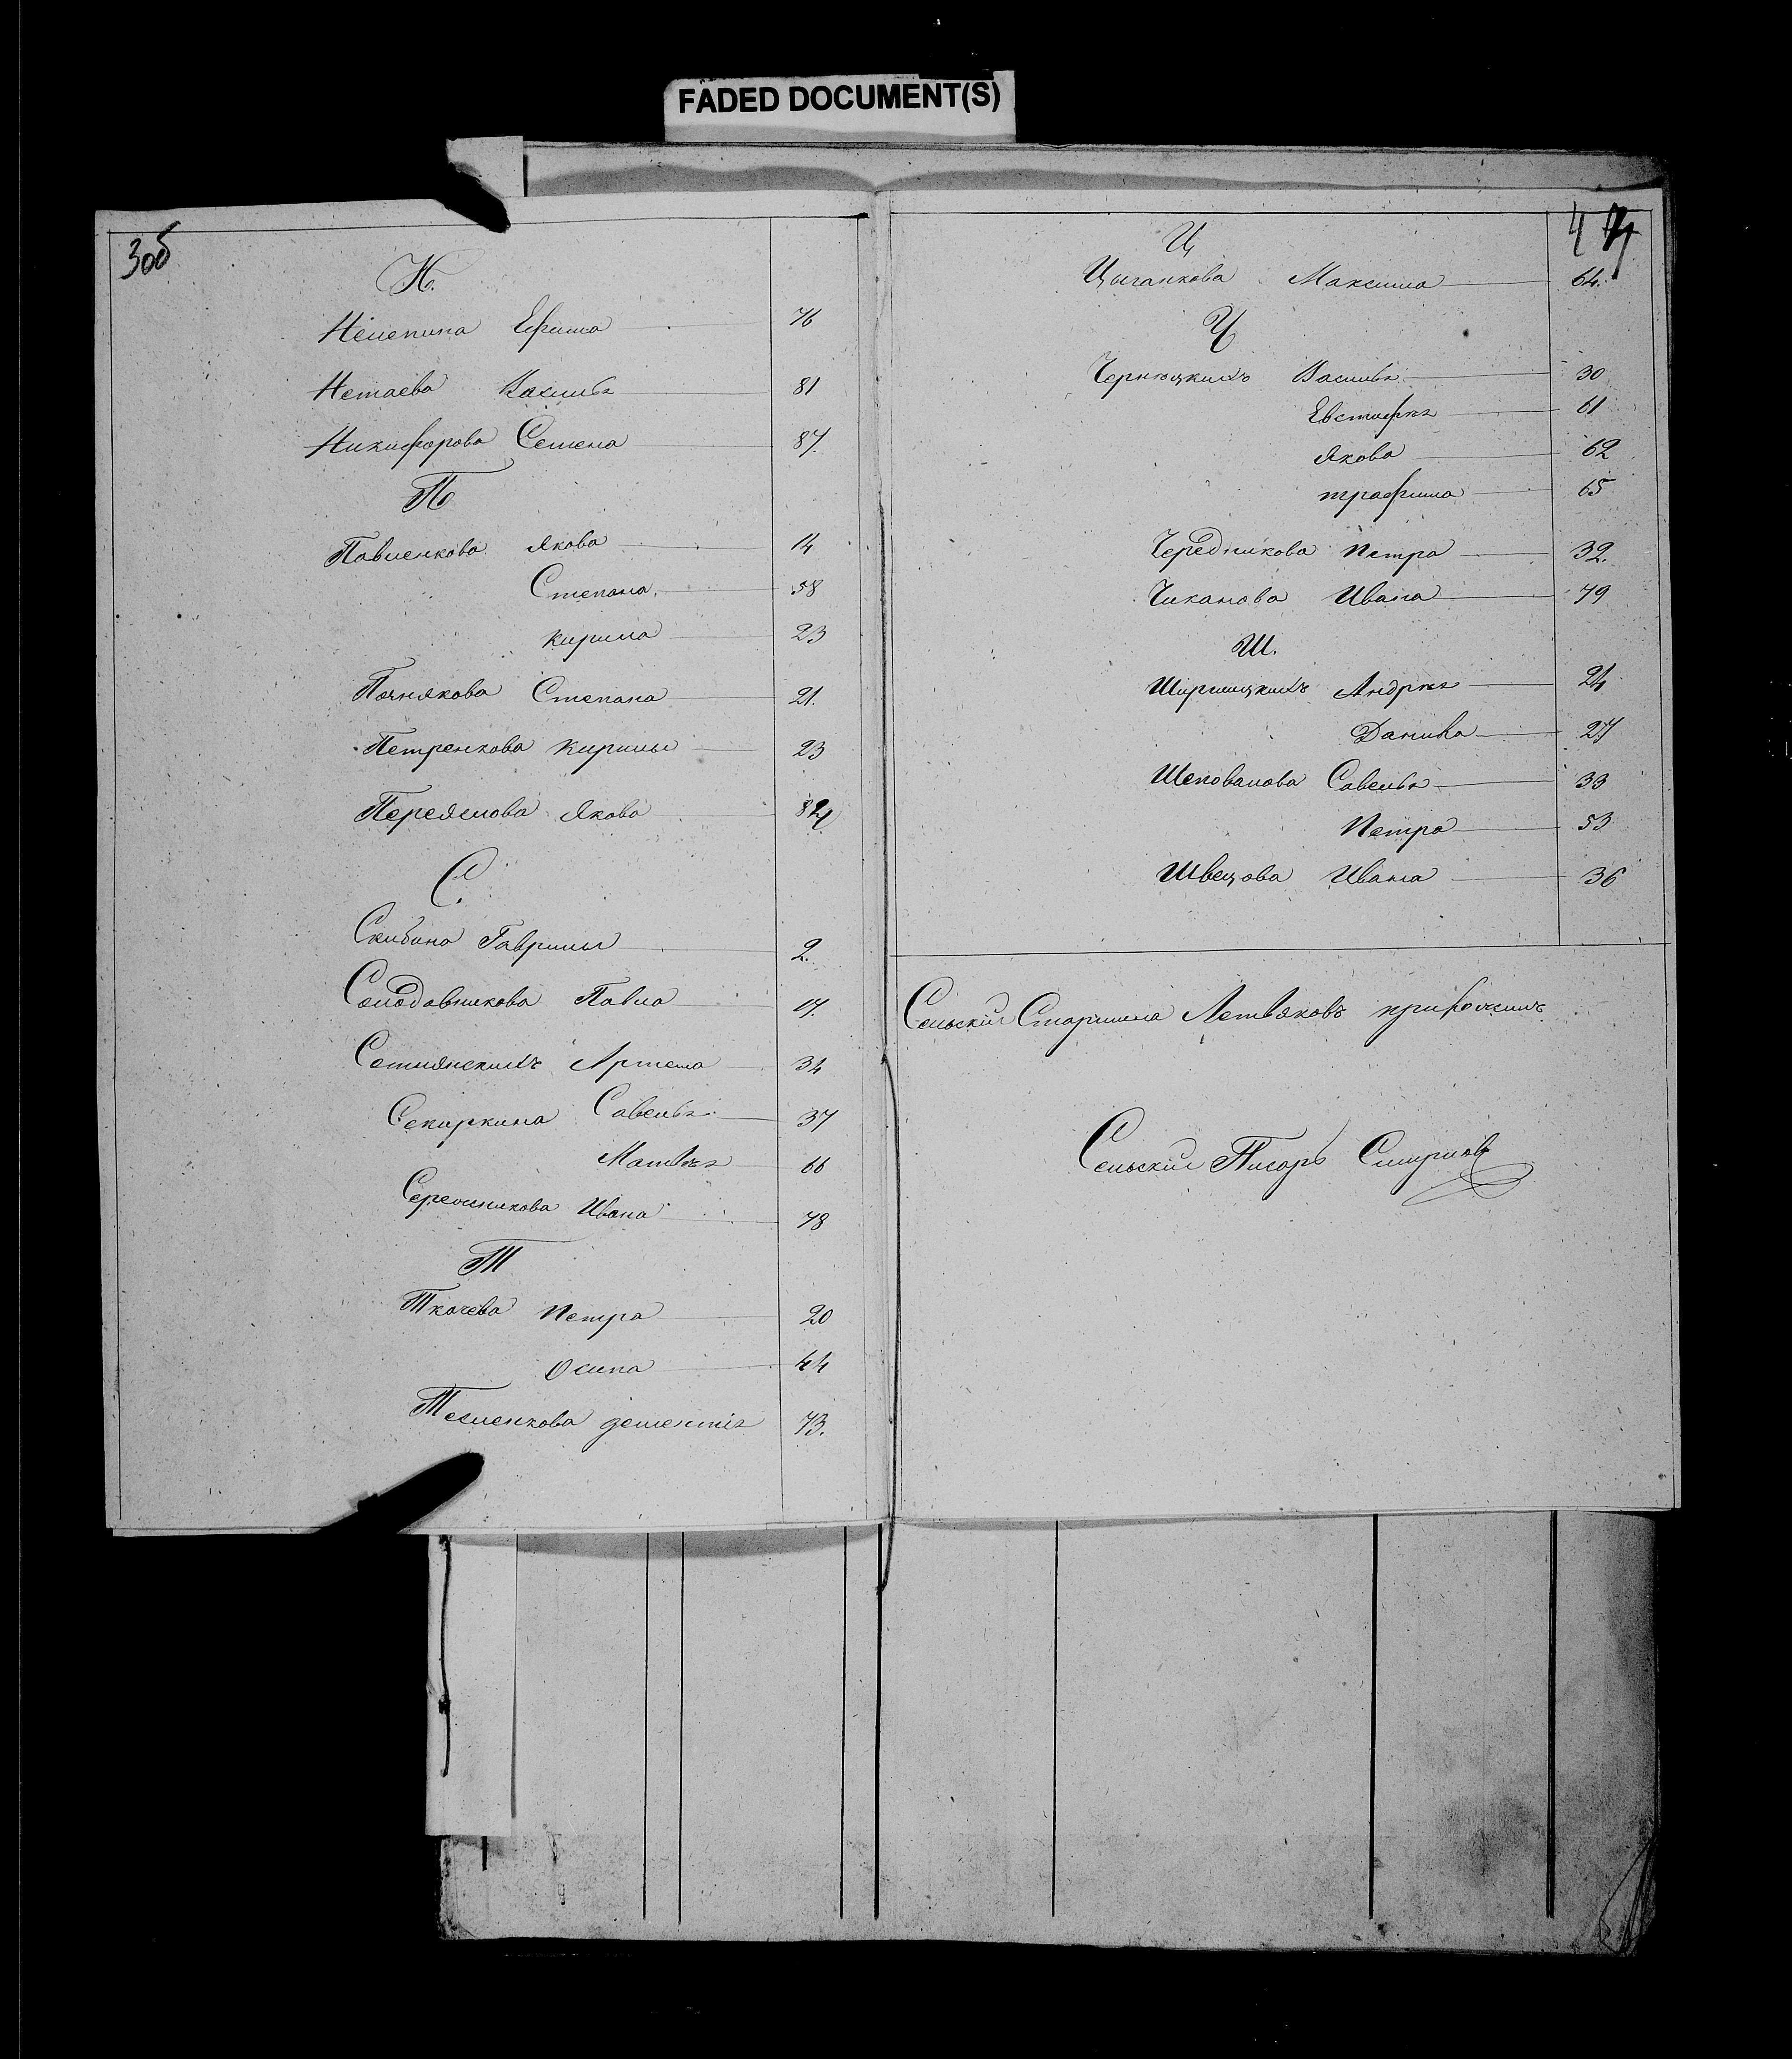 FADED DOCUMENT(S)
3об
Н.
Нелепина Ефима 76
Нетаева Василья 81
Никифорова Семена 87.
П
Павленкова Якова 14
Степана 58
Кирила 23
Познякова Степана 21.
Петренкова Кирилы 23
Переялова Якова 82
С.
Скибина Гаврилы 2.
Солодовникова Павла 17.
Сотнянскихъ Артема 34
Секиркина Савелья 37
Матвѣя 66
Середникова Ивана 78
Т
Ткачева Петра 20
Осипа 44
Тесленкова дементія 73.
4
Ц
Цыганкова Максима 64.
Ч
Чернюцкихъ Василья 30
Евстафѣя 61
Якова 62
трафима 65
Чередникова Петра 32.
Чиканова Ивана 79
Ш.
Ширшицкихъ Андрѣя 24
Данила 27
Шеповалова Савелья 33
Петра 53
Швецова Ивана 36
Сельскій Старшина Летвяковъ
Сельскій Писарь Смирновъ